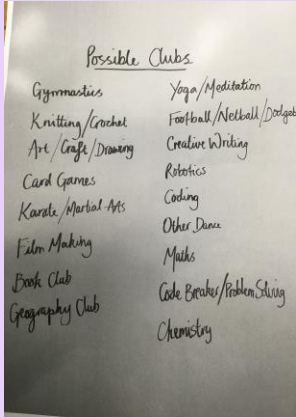 Possible Clubs
Gymnastics
Knitting/Crochet
Art/Craft/Drawing
Card Games
Karate/Martial Arts
Film Making
Book Club
Geography Club
Yoga/Meditation
Football/Netball/Dodgeb
Creative Writing
Robotics
Coding
Other Dance
Maths
Code Breaker/Problem Solving
Chemistry